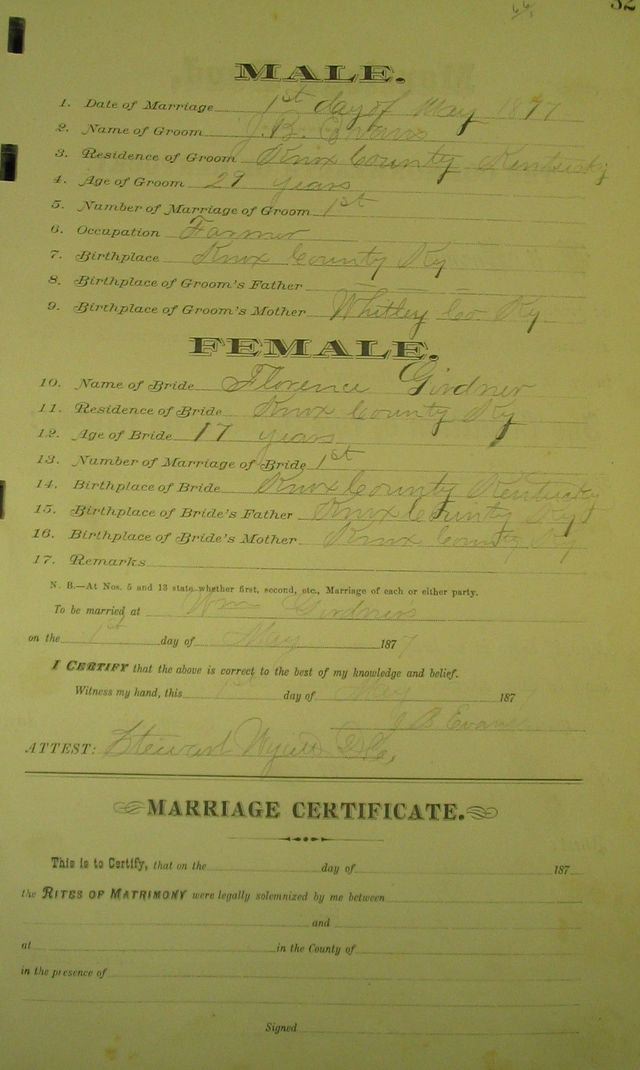 32
MALE.
1. Date of Marriage 1st day of May 1877
2. Name of Groom J. B. Evans
3. Residence of Groom Knox County Kentucky
4. Age of Groom 29 years
5. Number of Marriage of Groom 1st
6. Occupation Farmer
7. Birthplace Knox County Ky
8. Birthplace of Groom's Father
9. Birthplace of Groom's Mother Whitley Co. Ky.
FEMALE.
10. Name of Bride Florence Girdner
11. Residence of Bride Knox County Ky
12. Age of Bride 17 years
13. Number of Marriage of Bride 1st
14. Birthplace of Bride Knox County Kentucky
15. Birthplace of Bride's Father Knox County Ky
16. Birthplace of Bride's Mother Knox County Ky
17. Remarks
N. B.—At Nos. 5 and 13 state whether first, second, etc., Marriage of each or either party.
To be married at Wm Girdners
on the 1st day of May 1877
I CERTIFY that the above is correct to the best of my knowledge and belief.
Witness my hand, this 1st day of May 187
J B Evans
ATTEST: Stewart
MARRIAGE CERTIFICATE.
This is to Certify, that on the day of 187
the RITES OF MATRIMONY were legally solemnized by me between
and
at in the County of
in the presence of
Signed